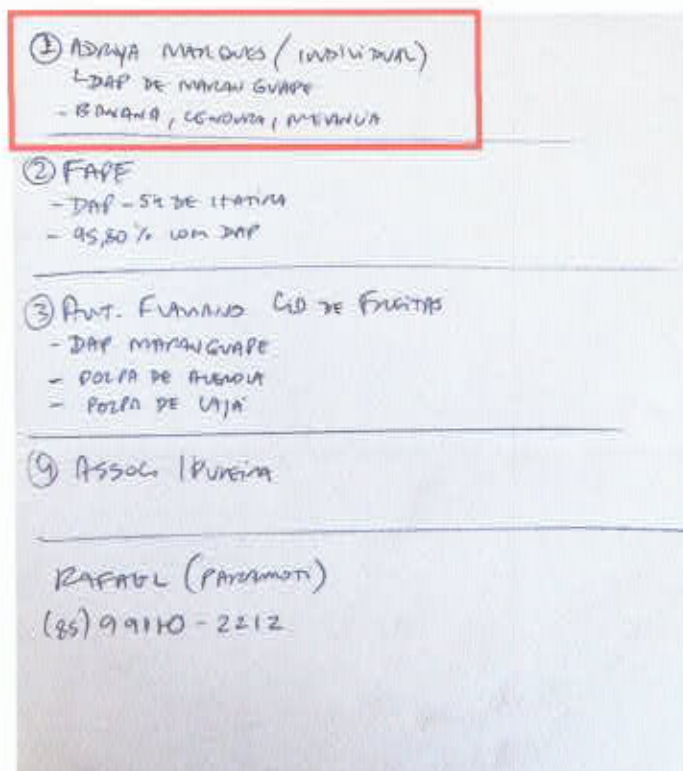 ① ADRYA MARQUES (INDIVIDUAL)
└ DAP DE MARANGUAPE
- BANANA, CENOURA, MELANCIA
② FAPE
- DAP - 54 DE ITATIRA
- 95,80 % COM DAP
③ ANT. FLAVIANO CID DE FREITAS
- DAP MARANGUAPE
- POLPA DE ACEROLA
- POLPA DE CAJÁ
④ ASSOC. IPUEIRA
RAFAEL (PARAMOTI)
(85) 99110-2212